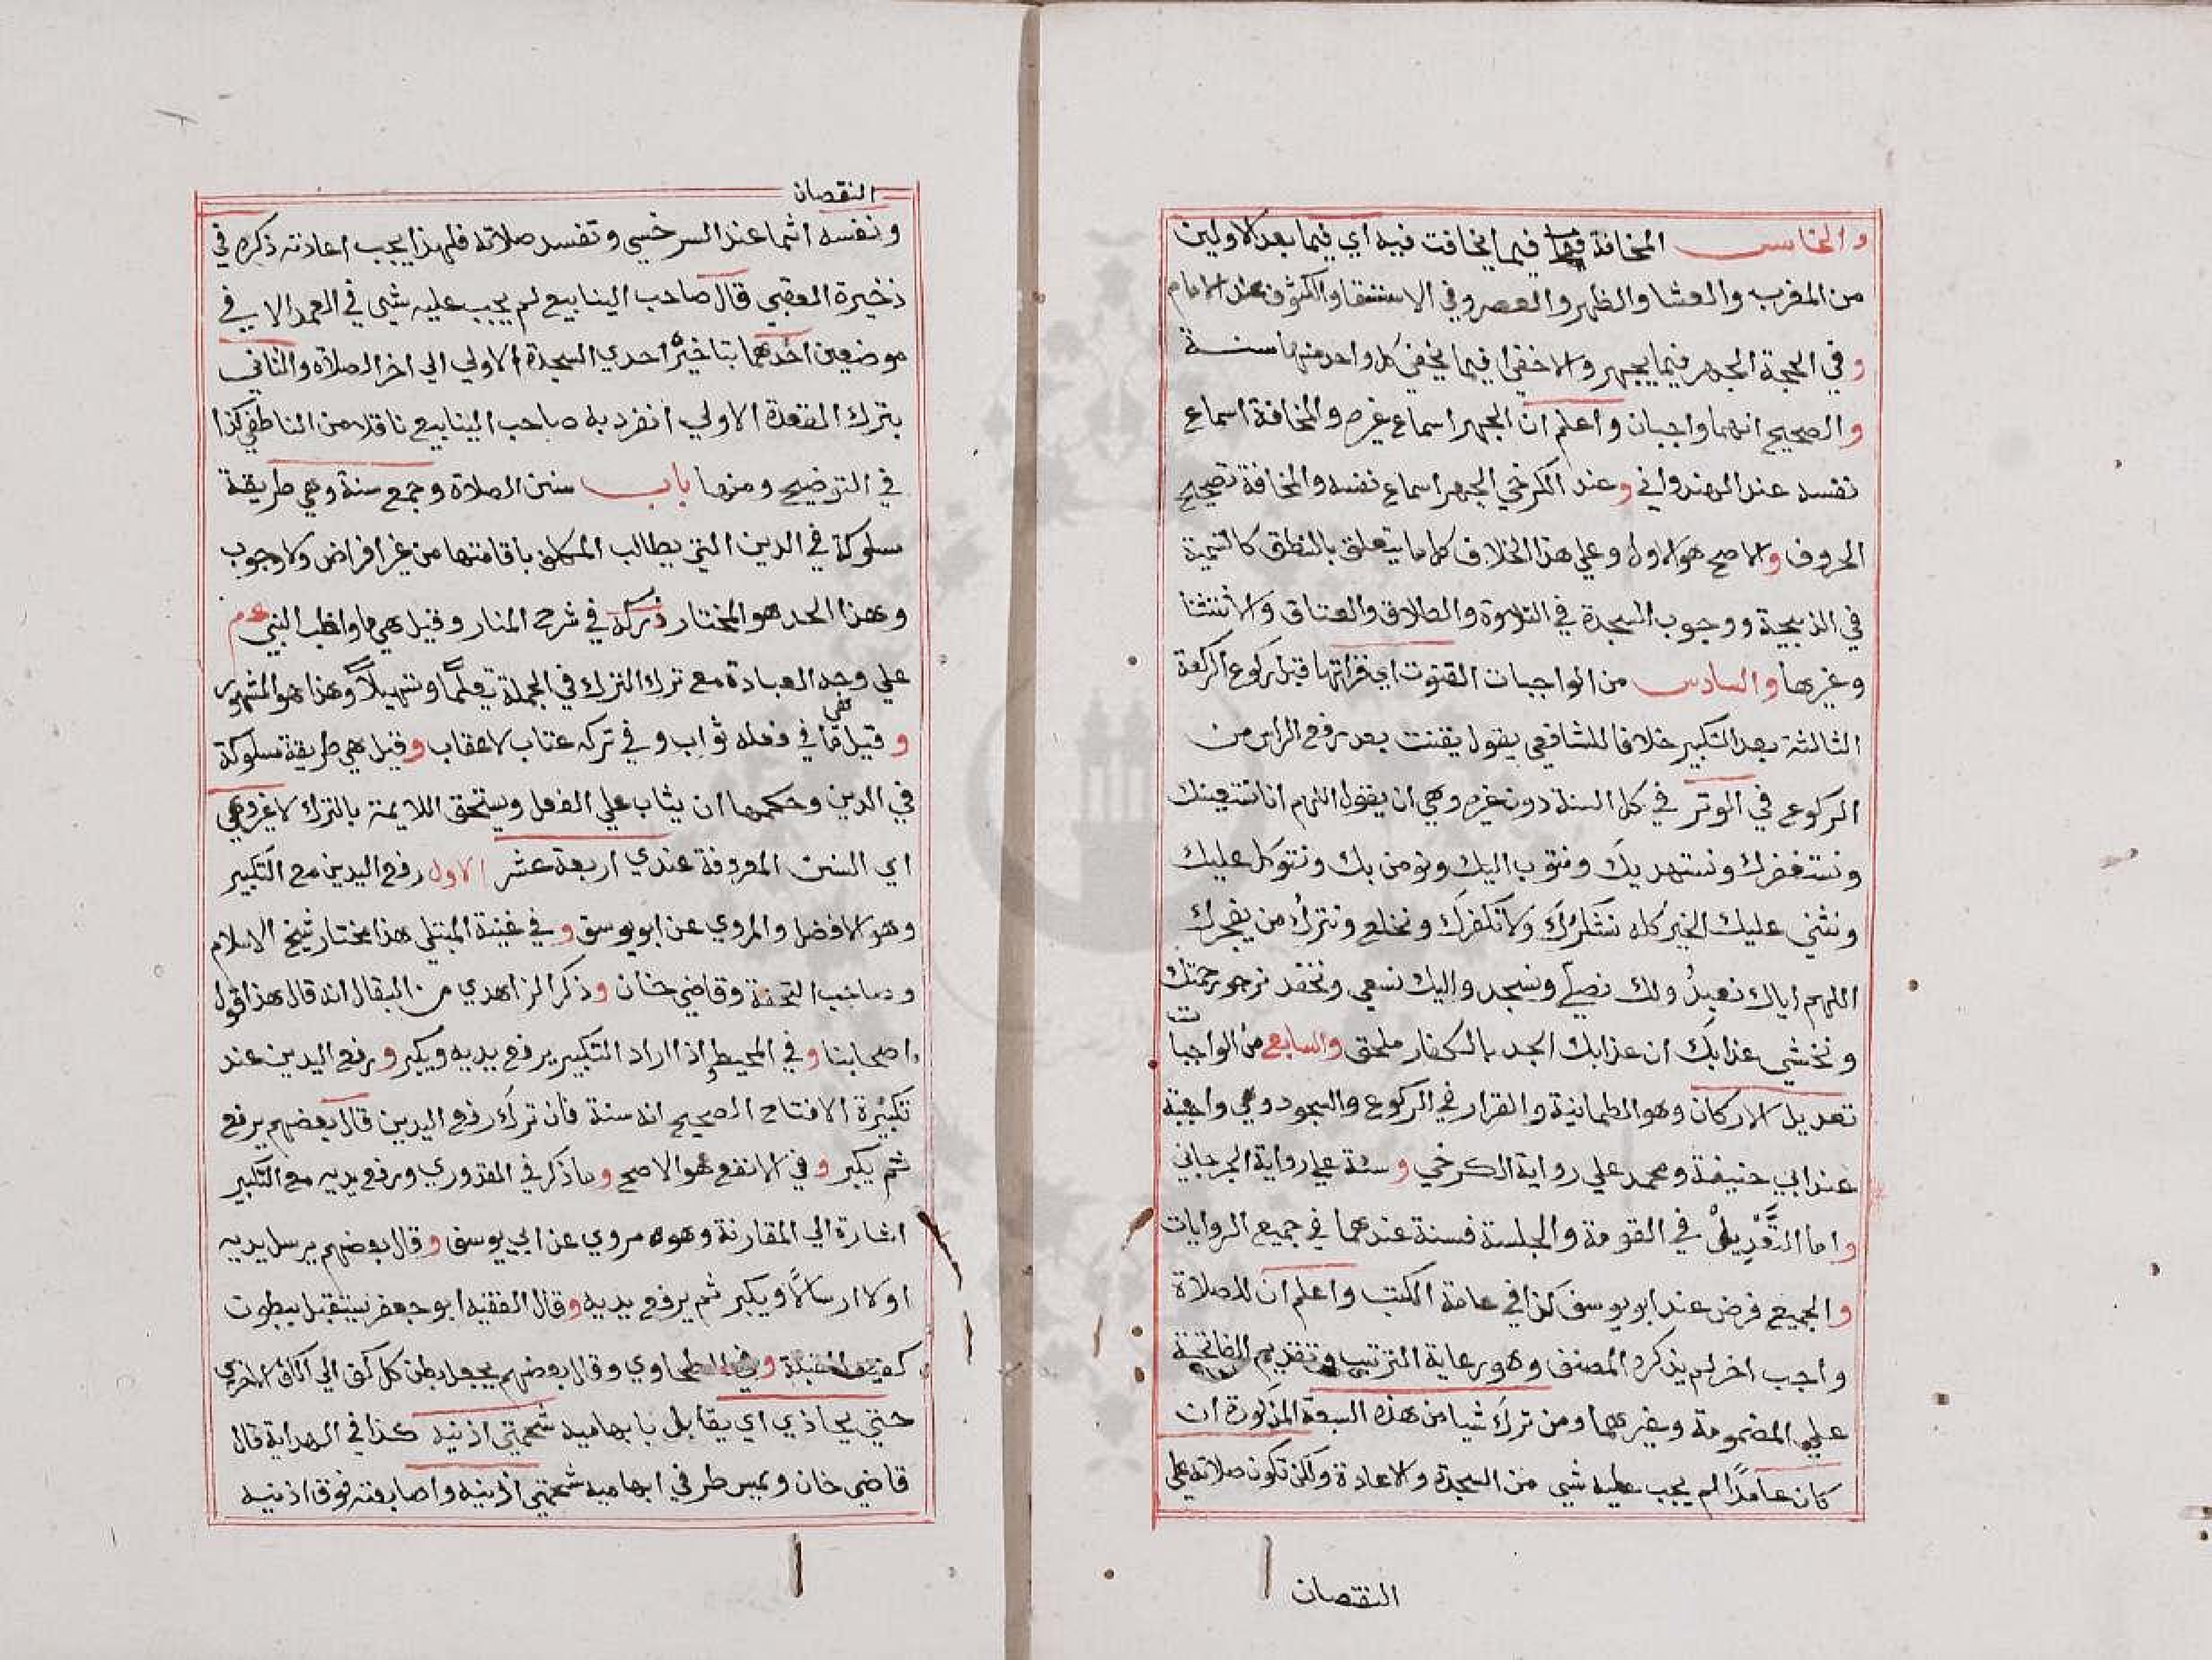 والخامس المخافة فيما يخافت فيه اي فيما بعد الاولين
من المغرب والعشا والظهر والعصر وفي الاستسقا والكسوف عند الامام
وفي الحجة الجهر فيما يجهر والاخفا فيما يخفي كل واحد منهما سنة
والصحيح انهما واجبان واعلم ان الجهر اسماع غيره والمخافة اسماع
نفسه عند الهندواني وعند الكرخي الجهر اسماع نفسه والمخافة تصحيح
الحروف والاصح هو الاول وعلي هذا الخلاف كل ما يتعلق بالنطق كالتسمية
في الذبيحة ووجوب السجدة في التلاوة والطلاق والعتاق والاستثنا
وغيرها والسادس من الواجبات القنوت اي قراتها قبل ركوع الركعة
الثالثة بعد التكبير خلافا للشافعي يقول يقنت بعد رفع الراس من
الركوع في الوتر في كل السنة دون غيره وهي ان يقول اللهم انا نستعينك
ونستغفرك ونستهديك ونتوب اليك ونومن بك ونتوكل عليك
ونثني عليك الخير كله نشكرك ولا نكفرك ونخلع ونترك من يفجرك
اللهم اياك نعبد ولك نصلي ونسجد واليك نسعي ونحفد نرجو رحمتك
ونخشي عذابك ان عذابك الجد بالكفار ملحق والسابع من الواجبات
تعديل الاركان وهو الطمانينة والقرار في الركوع والسجود وهي واجبة
عند ابي حنيفة ومحمد علي رواية الكرخي وسنة علي رواية الجرجاني
واما التعديل في القومة والجلسة فسنة عندهما في جميع الروايات
والجميع فرض عند ابو يوسف كذا في عامة الكتب واعلم ان للصلاة
واجب اخر لم يذكره المصنف وهو رعاية الترتيب وتقديم الفاتحة
علي المضمومة وغيرهما ومن ترك شيا من هذه السبعة المذكورة ان
كان عامدا لم يجب عليه شي من السجدة والاعادة ولكن تكون صلاته علي
النقصان
النقصان
ونفسه اثما عند السرخسي وتفسد صلاته فلهذا يجب اعادته ذكره في
ذخيرة العقبي قال صاحب الينابيع لم يجب عليه شي في العمد الا في
موضعين احدهما بتاخير احدي السجدة الاولي الي اخر الصلاة والثاني
بترك القعدة الاولي انفرد به صاحب الينابيع ناقلا من الناطفي كذا
في التوضيح ومنها باب سنن الصلاة وجمع سنة وهي طريقة
مسلوكة في الدين التي يطالب المكلف باقامتها من غير افراض ولا وجوب
وهذا الحد هو المختار ذكره في شرح المنار وقيل هي ما واظب النبي عم
علي وجه العبادة مع ترك الترك في الجملة تعلما وتسهيلا وهذا هو المشهور
وقيل ما في فعله ثواب وفي تركه عتاب لا عقاب وقيل هي طريقة مسلوكة
في الدين وحكمها ان يثاب علي الفعل ويستحق اللايمة بالترك لا غير وهي
اي السنن المعروفة عندي اربعة عشر الاول رفع اليدين مع التكبير
وهو الافضل والمروي عن ابو يوسف وفي غنية المبتلي هذا مختار شيخ الاسلام
وصاحب التحفة وقاضي خان وذكر الزاهدي من البقال انه قال هذا قول
اصحابنا وفي المحيط اذا اراد التكبير يرفع يديه ويكبر ورفع اليدين عند
تكبيرة الافتتاح الصحيح انه سنة فان ترك رفع اليدين قال بعضهم يرفع
ثم يكبر وفي الانفع هو الاصح وما ذكر في القدوري ورفع يديه مع التكبير
اشارة الي المقارنة وهو مروي عن ابي يوسف وقال بعضهم يرسل يديه
اولا ارسالا ويكبر ثم يرفع يديه وقال الفقيه ابو جعفر يستقبل ببطون
كفيه القبلة وفي الطحاوي وقال بعضهم يجعل بطن كل كف الي الكف الاخري
حتي يحاذي اي يقابل بابهاميه شحمتي اذنيه كذا في الهداية قال
قاضي خان ويمس طرفي ابهاميه شحمتي اذنيه واصابعه فوق اذنيه